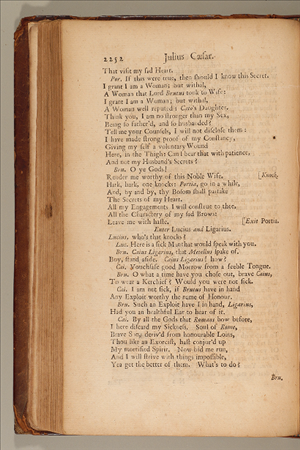 2252 Julius Cæsar.
That visit my sad Heart.
Por. If this were true, then should I know this Secret.
I grant I am a Woman; but withal,
A Woman that Lord Brutus took to Wife:
I grant I am a Woman; but withal,
A Woman well reputed; Cato's Daughter.
Think you, I am no stronger than my Sex,
Being so father'd, and so husbanded?
Tell me your Counsels, I will not disclose them:
I have made strong proof of my Constancy,
Giving my self a voluntary Wound
Here, in the Thigh: Can I bear that with patience,
And not my Husband's Secrets?
Bru. O ye Gods!
Render me worthy of this Noble Wife. [Knock.
Hark, hark, one knocks: Portia, go in a while,
And, by and by, thy Bosom shall partake
The Secrets of my Heart.
All my Engagements I will construe to thee,
All the Charactery of my sad Brows:
Leave me with haste. [Exit Portia.
Enter Lucius and Ligarius.
Lucius, who's that knocks?
Luc. Here is a sick Man that would speak with you.
Bru. Caius Ligarius, that Metellus spake of.
Boy, stand aside. Caius Ligarius! how?
Cai. Vouchsafe good Morrow from a feeble Tongue.
Bru. O what a time have you chose out, brave Caius,
To wear a Kerchief? Would you were not sick.
Cai. I am not sick, if Brutus have in hand
Any Exploit worthy the name of Honour.
Bru. Such an Exploit have I in hand, Ligarius,
Had you an healthful Ear to hear of it.
Cai. By all the Gods that Romans bow before,
I here discard my Sickness. Soul of Rome,
Brave Son, deriv'd from honourable Loins,
Thou like an Exorcist, hast conjur'd up
My mortified Spirit. Now bid me run,
And I will strive with things impossible,
Yea get the better of them. What's to do?
Bru.